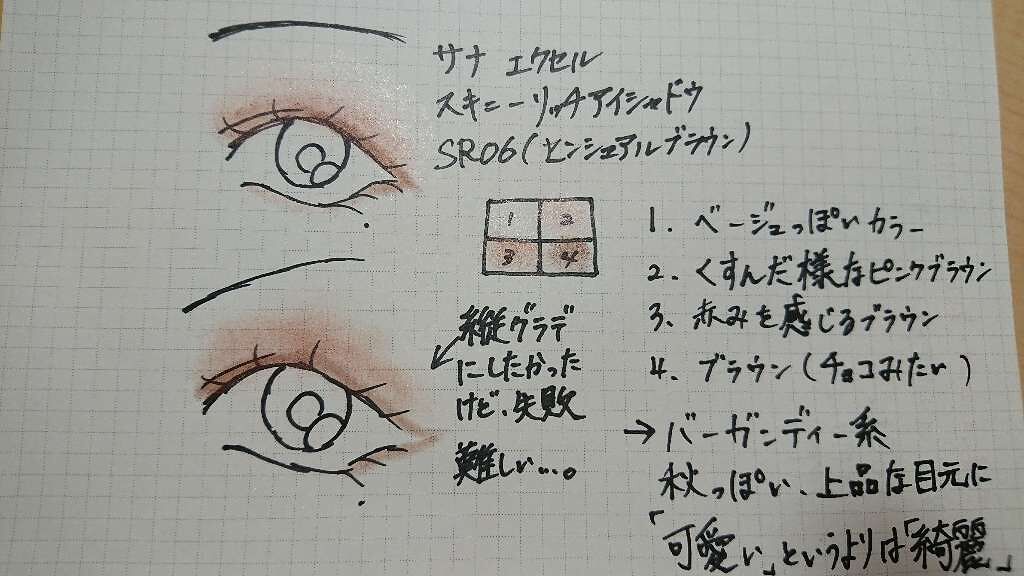 サナ エクセル
スキニーリッチアイシャドウ
SR06(センシュアルブラウン)
1 2
3 4
1. ベージュっぽいカラー
2. くすんだ様なピンクブラウン
3. 赤みを感じるブラウン
4. ブラウン(チョコみたい)
縦グラデ
にしたかった
けど、失敗
難しい…。
→ バーガンディー系
秋っぽい、上品な目元に
「可愛い」というよりは「綺麗」